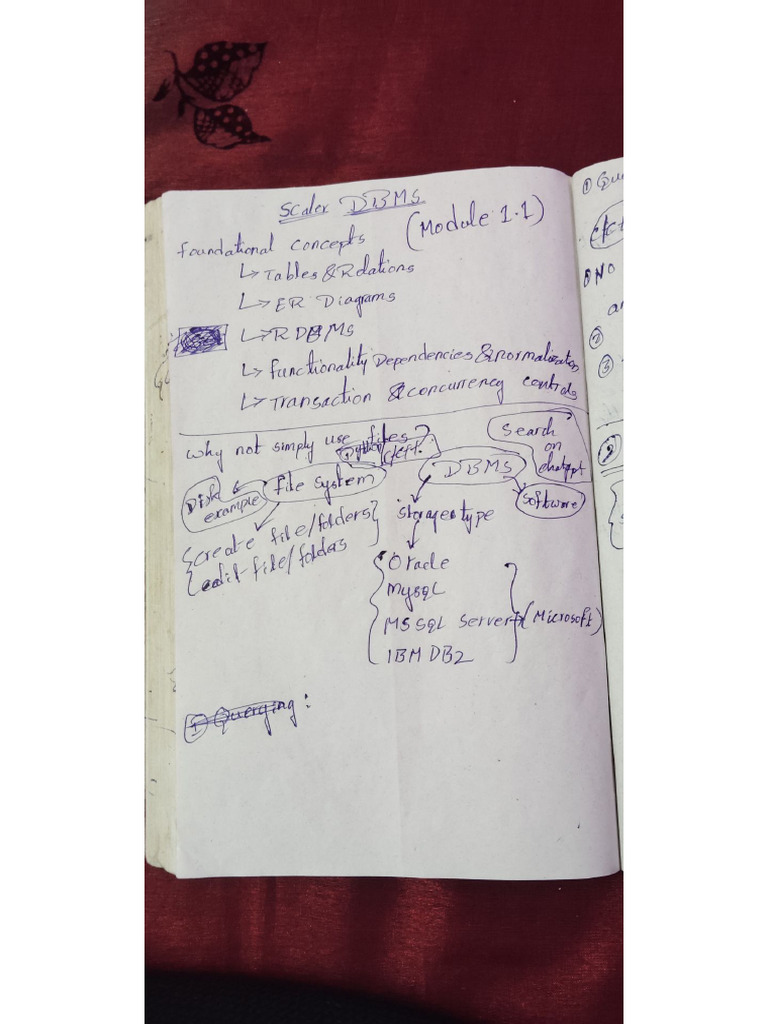 Scaler DBMS
(Module 1.1)
Foundational concepts
↳ Tables & Relations
↳ ER Diagrams
↳ RDBMS
↳ Functionality Dependencies & normalization
↳ Transaction & concurrency controls
why not simply use files?
Search
on
chatgpt
File System
DBMS
Disk
example
software
Storage type
{create file/folders}
{edit file/folders
Oracle
Mysql
MS SQL Server (Microsoft)
IBM DB2
① Querying:
① Qu
① NO
an
②
③